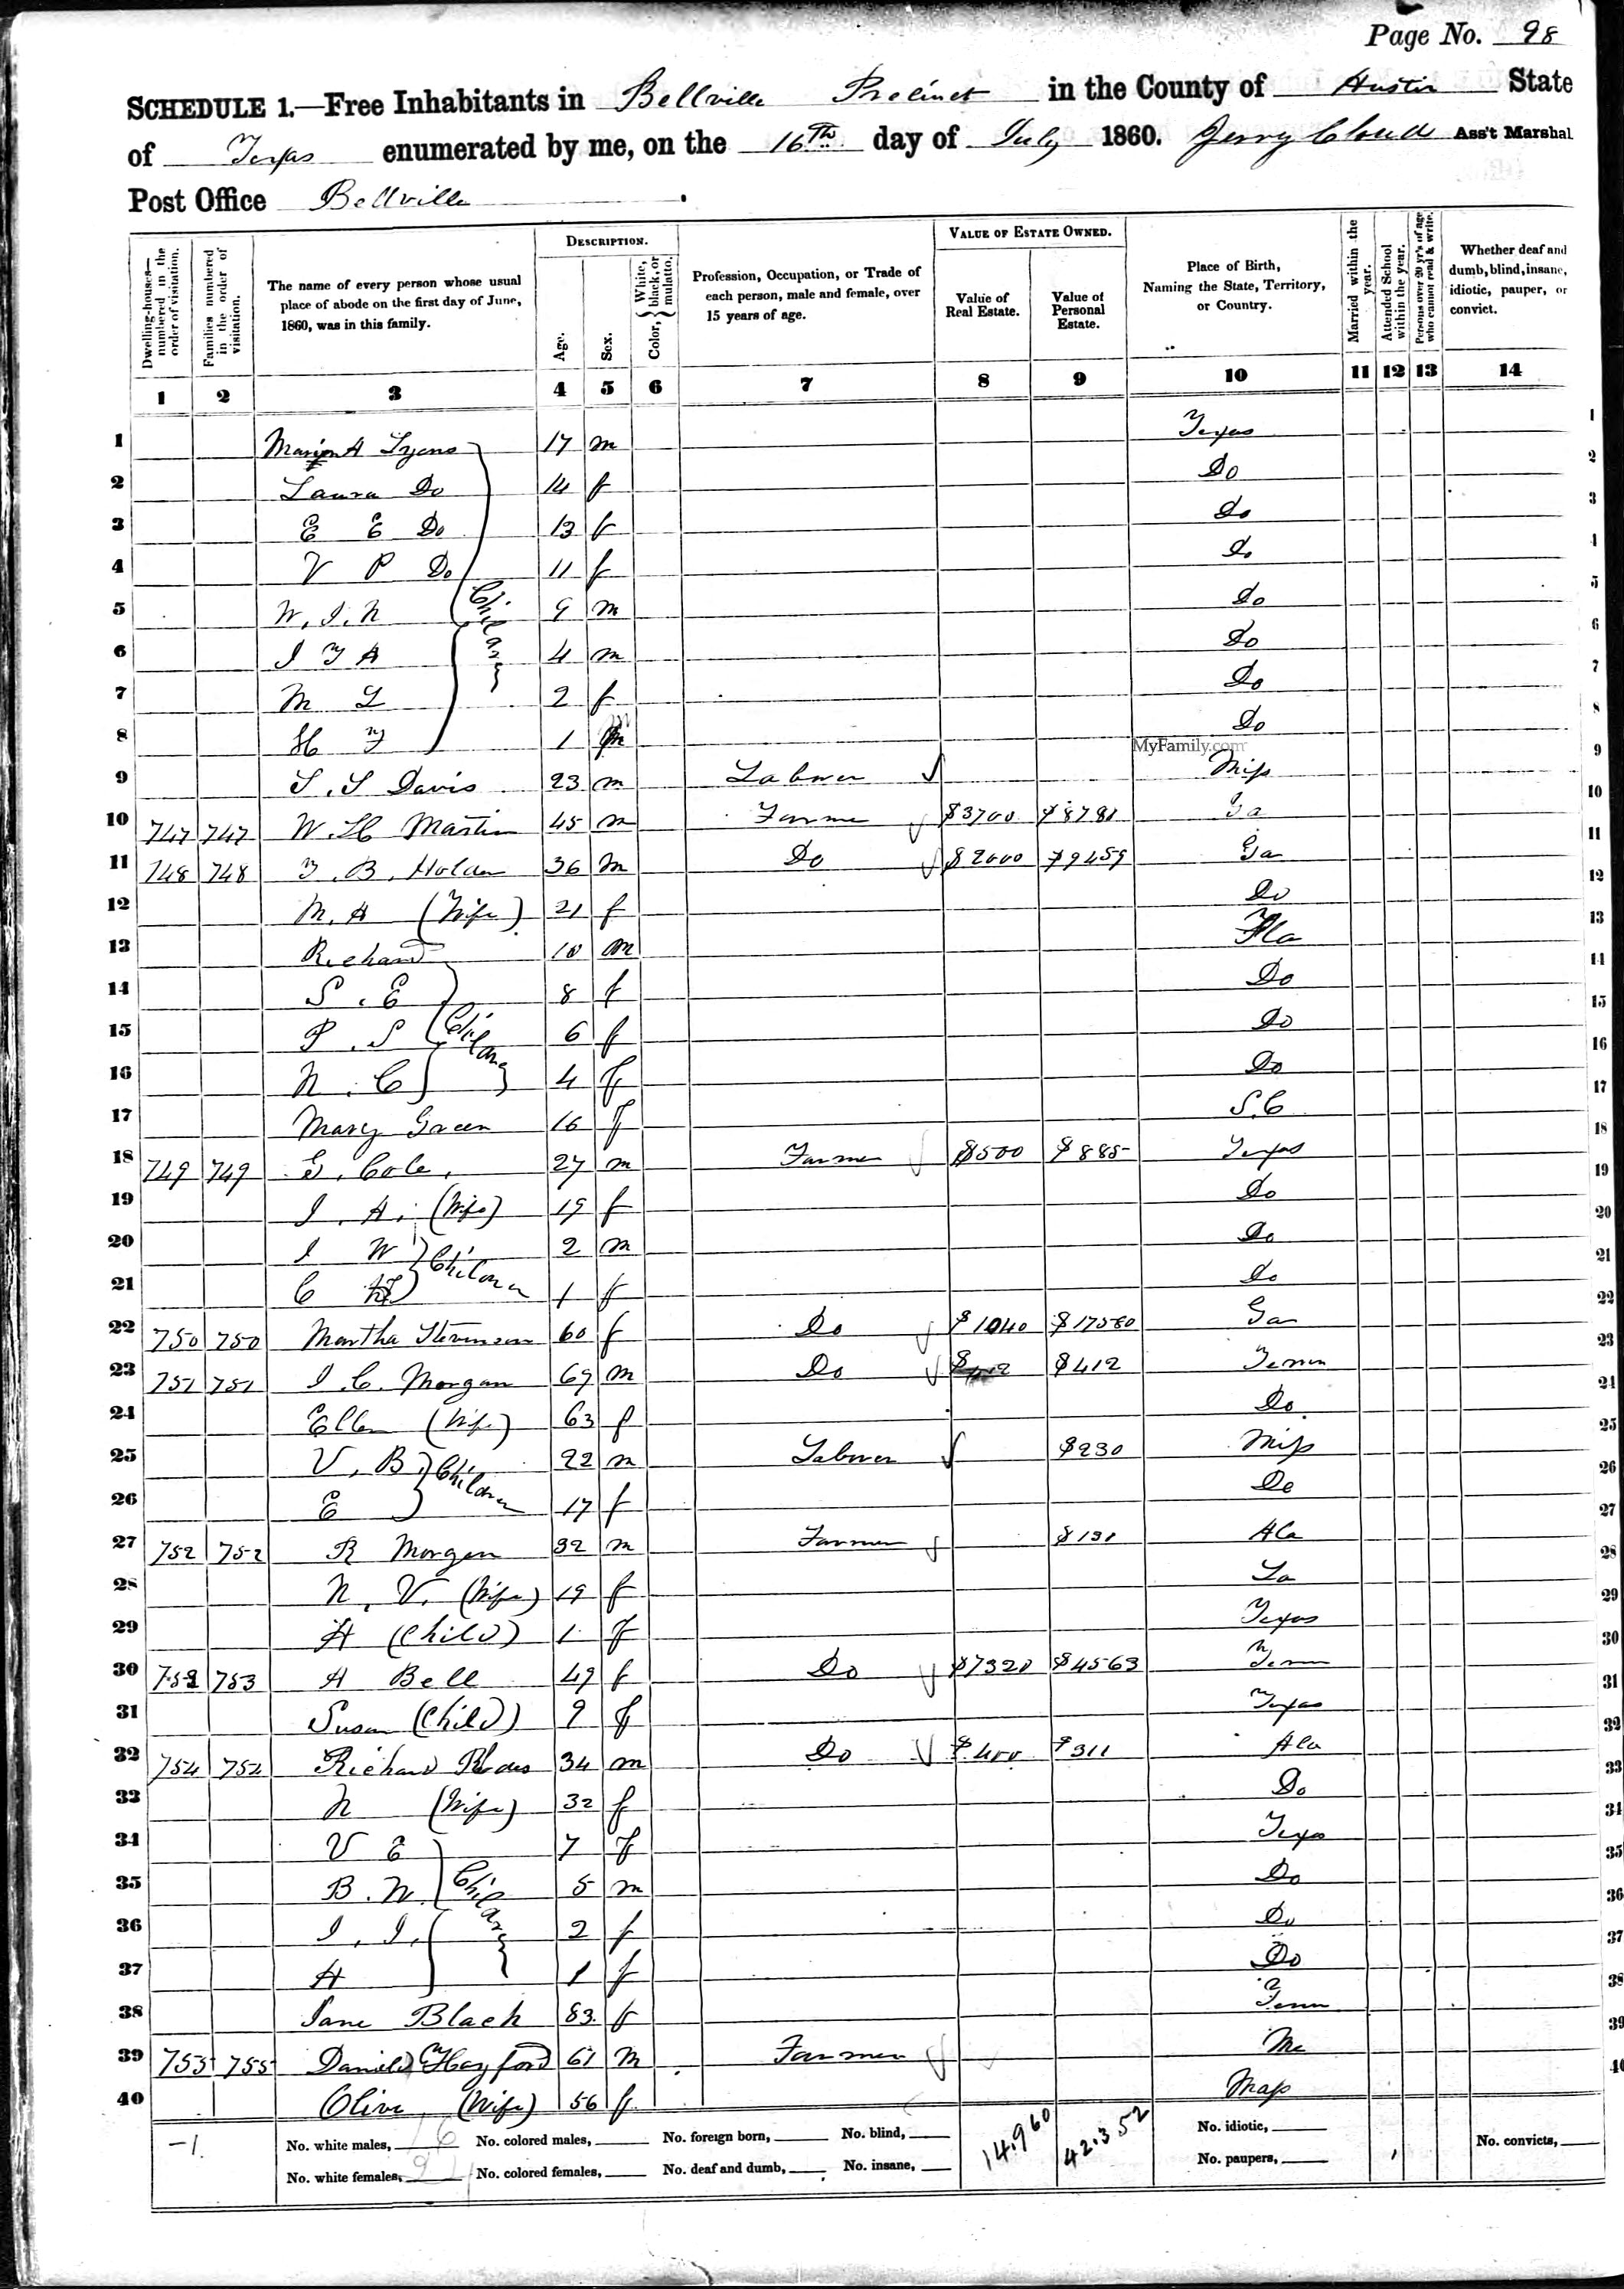 Page No. 98
SCHEDULE 1.—Free Inhabitants in Bellville Precinct in the County of Austin State
of Texas enumerated by me, on the 16th day of July 1860. Jerry Cloud Ass't Marshal
Post Office Bellville
Dwelling-houses—numbered in the order of visitation.
Families numbered in the order of visitation.
The name of every person whose usual place of abode on the first day of June, 1860, was in this family.
DESCRIPTION.
Age.
Sex.
Color, { White, black, or mulatto.
Profession, Occupation, or Trade of each person, male and female, over 15 years of age.
VALUE OF ESTATE OWNED.
Value of Real Estate.
Value of Personal Estate.
Place of Birth, Naming the State, Territory, or Country.
Married within the year.
Attended School within the year.
Persons over 20 yr's of age who cannot read & write.
Whether deaf and dumb, blind, insane, idiotic, pauper, or convict.
1 2 3 4 5 6 7 8 9 10 11 12 13 14
1 Marion A Lyons 17 m Texas 1
2 Laura Do 14 f Do 2
3 E E Do 13 f Do 3
4 V P Do 11 f Do 4
5 W. I. N Children 9 m Do 5
6 I T A 4 m Do 6
7 M L 2 f Do 7
8 H T 1 m Do 8
MyFamily.com
9 S. S Davis 23 m Laborer Miss 9
10 747 747 W. H Martin 45 m Farmer $3700 $8781 Ga 10
11 748 748 T. B. Holden 36 m Do $2000 $9459 Ga 11
12 M. A (Wife) 21 f Do 12
13 Richard 10 m Fla 13
14 S. E 8 f Do 14
15 P. S Children 6 f Do 15
16 N. C 4 f Do 16
17 Mary Green 16 f S.C 17
18 749 749 Cole 27 m Farmer $500 $885 Texas 18
19 I. A. (Wife) 19 f Do 19
20 I W Children 2 m Do 20
21 C 1 f Do 21
22 750 750 Martha Stevenson 60 f Do $1040 $17580 Ga 22
23 751 751 I. C. Morgan 69 m Do $412 Tenn 23
24 Ellen (Wife) 63 f Do 24
25 V. B Children 22 m Laborer $230 Miss 25
26 E 17 f Do 26
27 752 752 R Morgan 32 m Farmer $131 Ala 27
28 N. V. (Wife) 19 f La 28
29 A (Child) 1 f Texas 29
30 753 753 A Bell 49 f Do $7320 $4563 Tenn 30
31 Susan (Child) 9 f Texas 31
32 754 754 Richard Rhodes 34 m Do $400 $311 Ala 32
33 N (Wife) 32 f Do 33
34 V E 7 f Texas 34
35 B. N. Children 5 m Do 35
36 I. I. 2 f Do 36
37 A 1 f Do 37
38 Jane Black 83 f Tenn 38
39 755 755 Daniel Hayford 61 m Farmer Me 39
40 Olive (Wife) 56 f Mass 40
-1. No. white males, 16 No. colored males, No. foreign born, No. blind, 14.960 42.352 No. idiotic, No. convicts,
No. white females, No. colored females, No. deaf and dumb, No. insane, No. paupers,